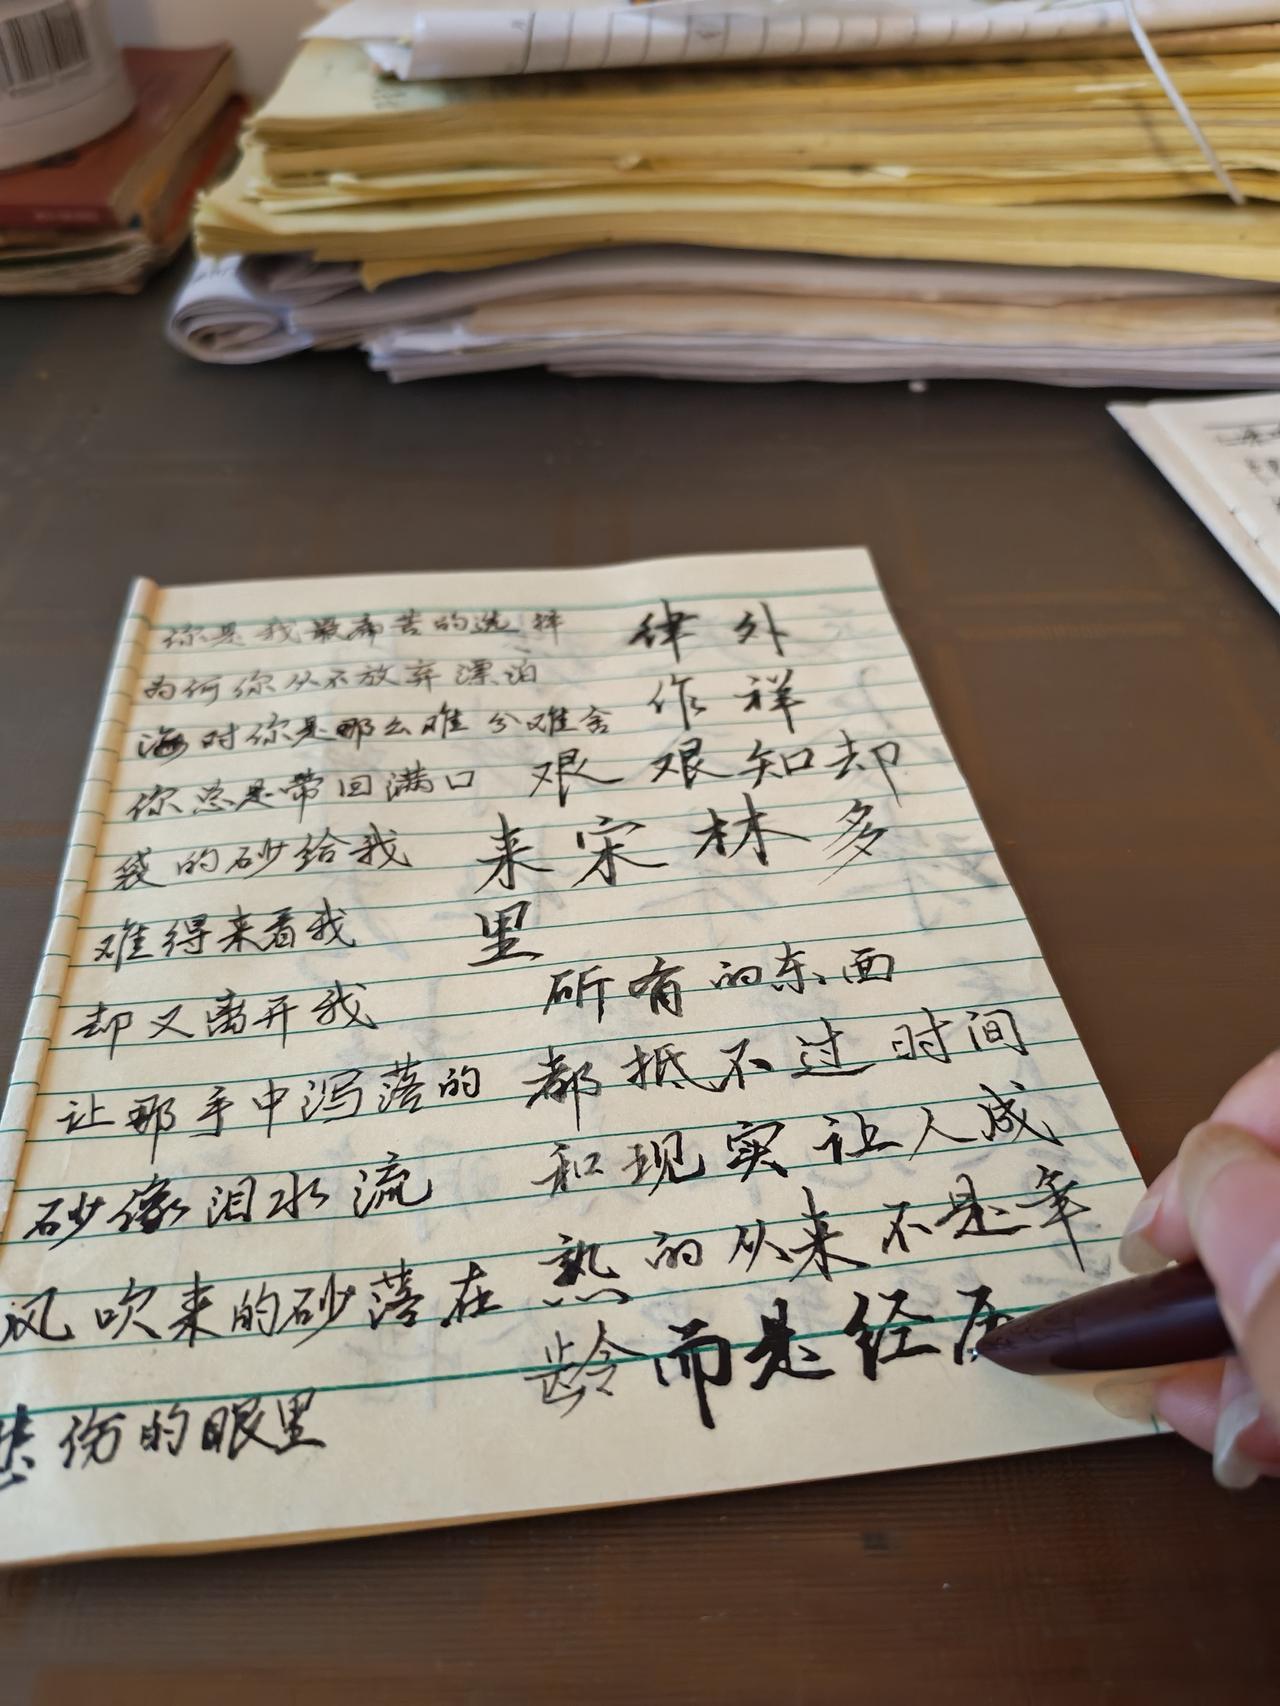 你是我最痛苦的选择
为何你从不放弃漂泊
海对你是那么难分难舍
你总是带回满口
袋的砂给我
难得来看我
却又离开我
让那手中泻落的
砂像泪水流
风吹来的砂落在
悲伤的眼里
律外
作祥
艰艰知却
来宋林多
里
所有的东面
都抵不过时间
和现实让人成
熟的从来不是年
龄而是经历